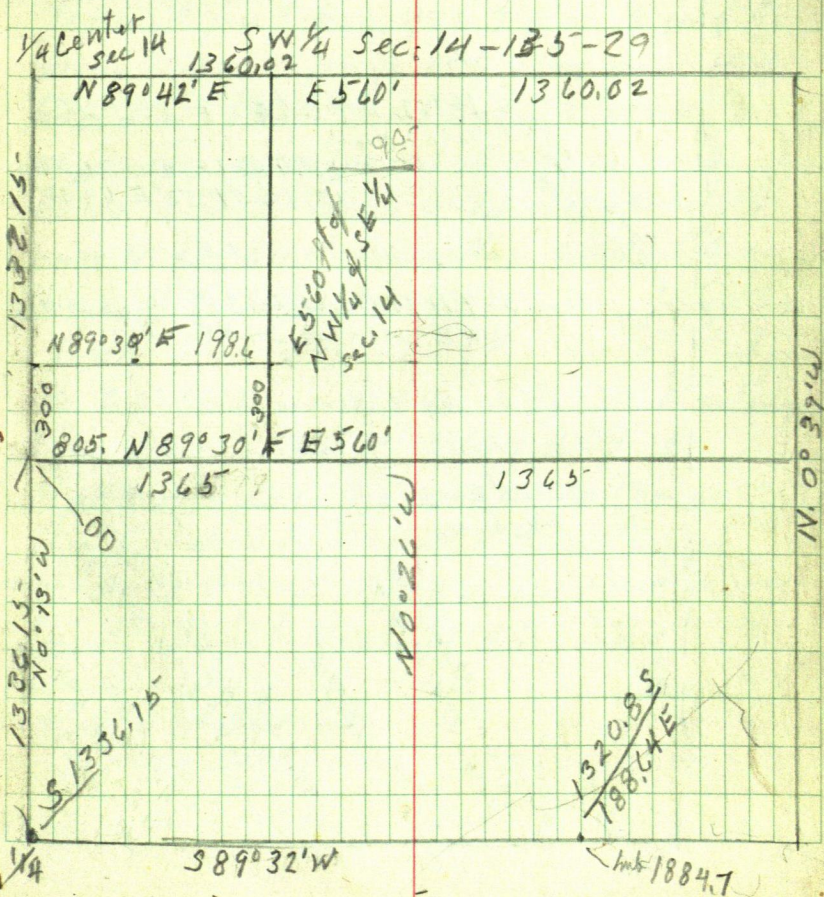 1/4 Center
sec 14
SW 1/4 Sec. 14-135-29
1360.02
N 89° 42' E E 560' 1360.02
90
E 560 ft of
NW 1/4 of SE 1/4
Sec. 14
N 89° 30' E 198.6
300
300
805. N 89° 30' E E 560'
1365 1365
00
N 0° 13' W
1336.15
N 0° 26' W
N. 0° 39' W
S 1336.15
1320.8 S
188.64 E
1/4
S 89° 32' W
1884.7